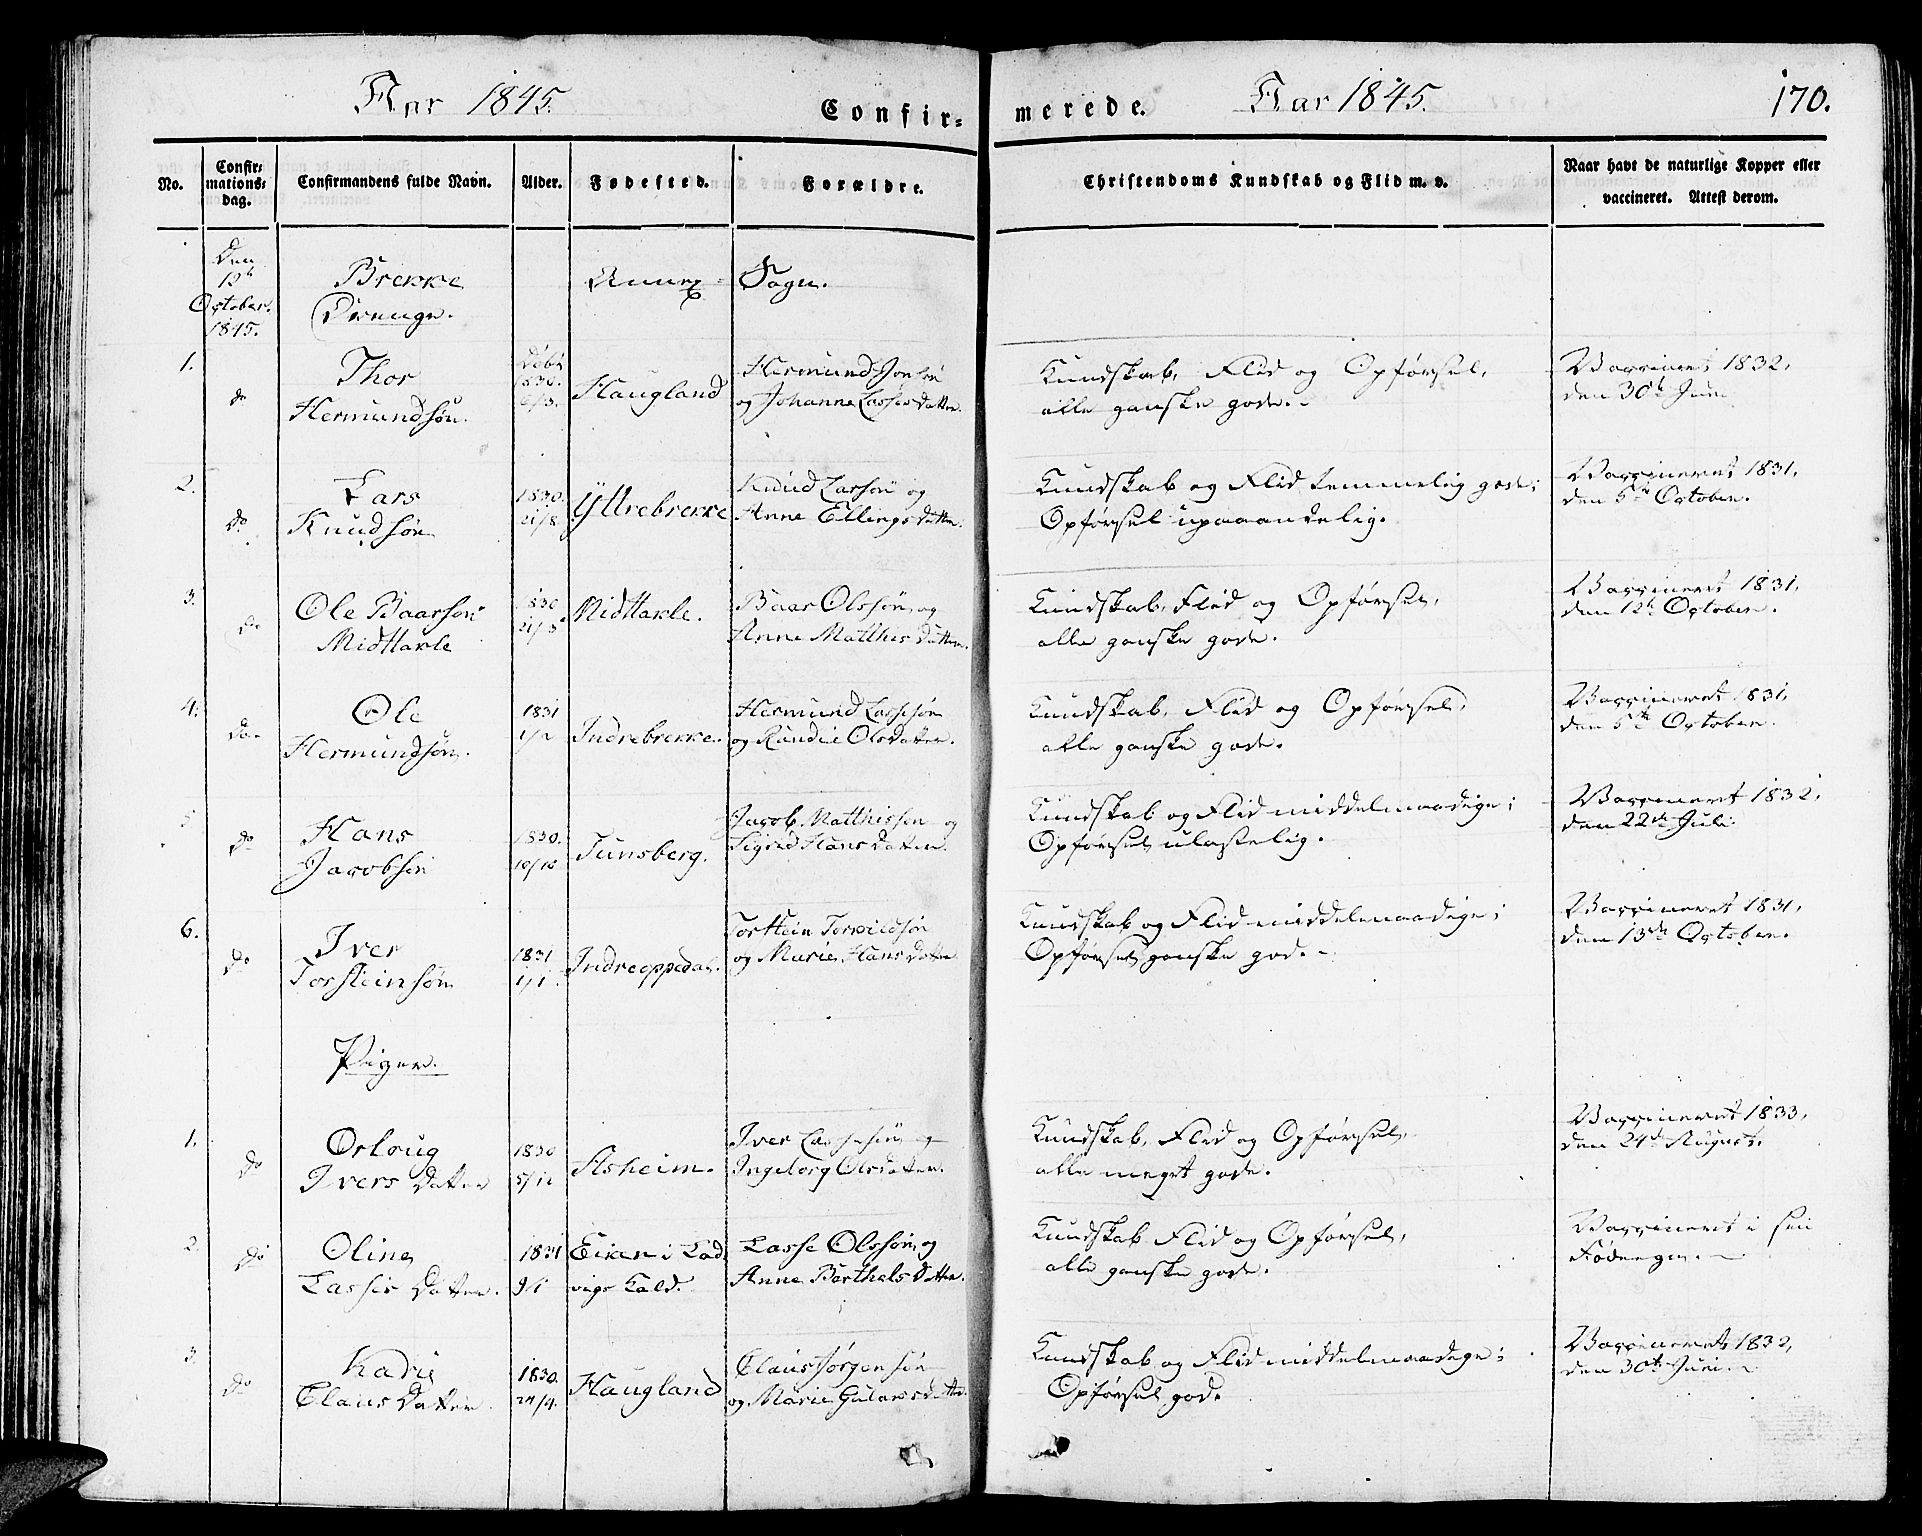 Aar 1845.
Confir-
merede.
Aar 1845.
170.
No.
Confir-
mations-
dag.
Confirmandens fulde Navn.
Alder.
Fødested.
Forældre.
Christendoms Kundskab og Flid m. v.
Naar havt de naturlige Kopper eller
vaccineret. Attest derom.
Den
October.
1845.
Brekke
Drenge.
Annex
Sogn.
1.
do
Thor
Hermundsøn.
1830.
Haugland
Hermund
og Johanne Lasses Datter.
Kundskab, Flid og Opførsel,
alle ganske gode.
Vaccineret 1832,
den 30te Juni
2.
do
Lars
Knudsøn
1830.
21/8.
Yttrebrekke
Knud Larssøn og
Anne Ellings Datter.
Kundskab og Flid temmelig gode;
Opførsel upaaandelig.
Vaccineret 1831,
den 5te October.
3.
do
Ole Baarsøn
Midttarle
1830
Midttarle.
Baar Olssøn og
Anne Matthis Datter.
Kundskab, Flid og Opførsel,
alle ganske gode.
Vaccineret 1831,
den 12te October.
4.
do
Ole
Hermundsøn.
1831
Indrebrekke.
Hermund Lassesøn
og Olsdatter.
Kundskab, Flid og Opførsel,
alle ganske gode.
Vaccineret 1831,
den 5te October.
5
do
Hans
Jacobsøn
1830.
10/10
Tunsberg.
Jacob Matthissøn og
Sigrid Hans Datter.
Kundskab og Flid middelmaadige;
Opførsel ulastelig.
Vaccineret 1832,
den 22de Juli
6.
do
Iver
Torsteinsøn
1831
1/1.
Indreoppedal.
Torstein
og Marie Hans Datter
Kundskab og Flid middelmaadige;
Opførsel ganske god.
Vaccineret 1831,
den 13de October.
Piger.
1.
do
Orloug
Ivers Datter
1830
5/12
Asheim.
Iver Lassesøn og
Ingeborg Olsdatter.
Kundskab, Flid og Opførsel,
alle meget gode.
Vaccineret 1833,
den 24de August.
2.
do
Oline
Lasses Datter.
1831
Eiken i Lad
vigs Kald.
Lasse Olssøn og
Anne Barthels Datter.
Kundskab Flid og Opførsel,
alle ganske gode.
Vaccineret i sin
Fødeegn.
3.
do
Kari
Claus Datter
1830.
24/4.
Haugland
Claus Jørgensøn
og Marie Datter
Kundskab og Flid middelmaadige;
Opførsel god.
Vaccineret 1832,
den 30te Juni.